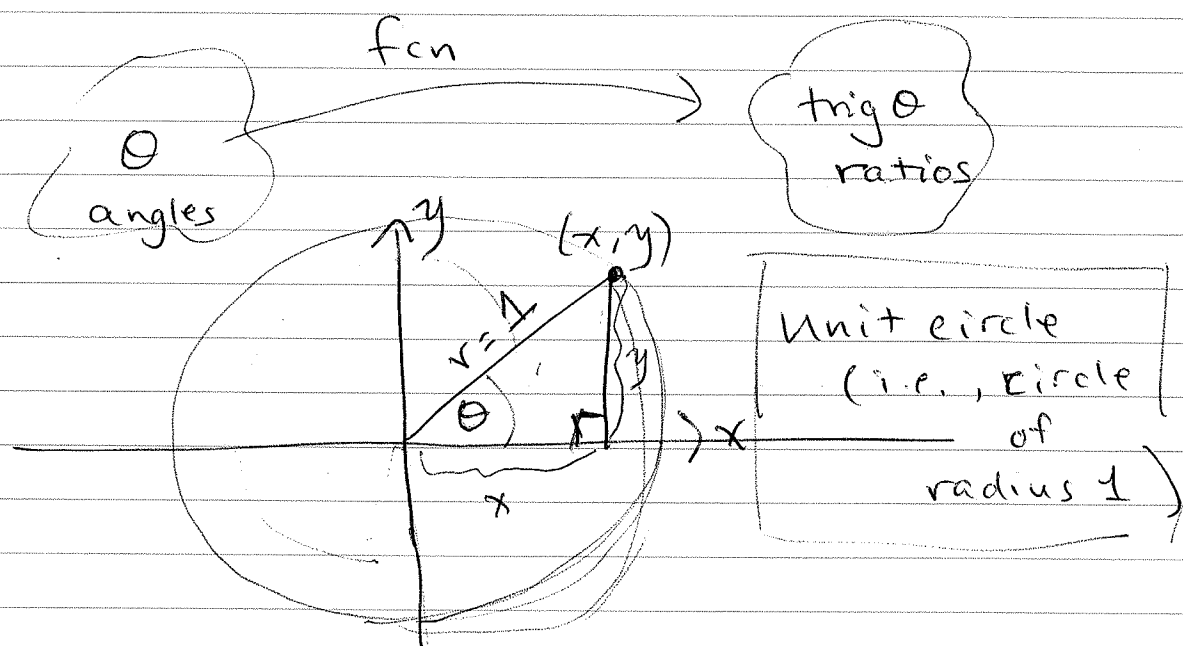 fcn
θ
angles
trig θ
ratios
y
(x, y)
r = 1
y
θ
x
x
Unit circle
(i.e., circle
of
radius 1)